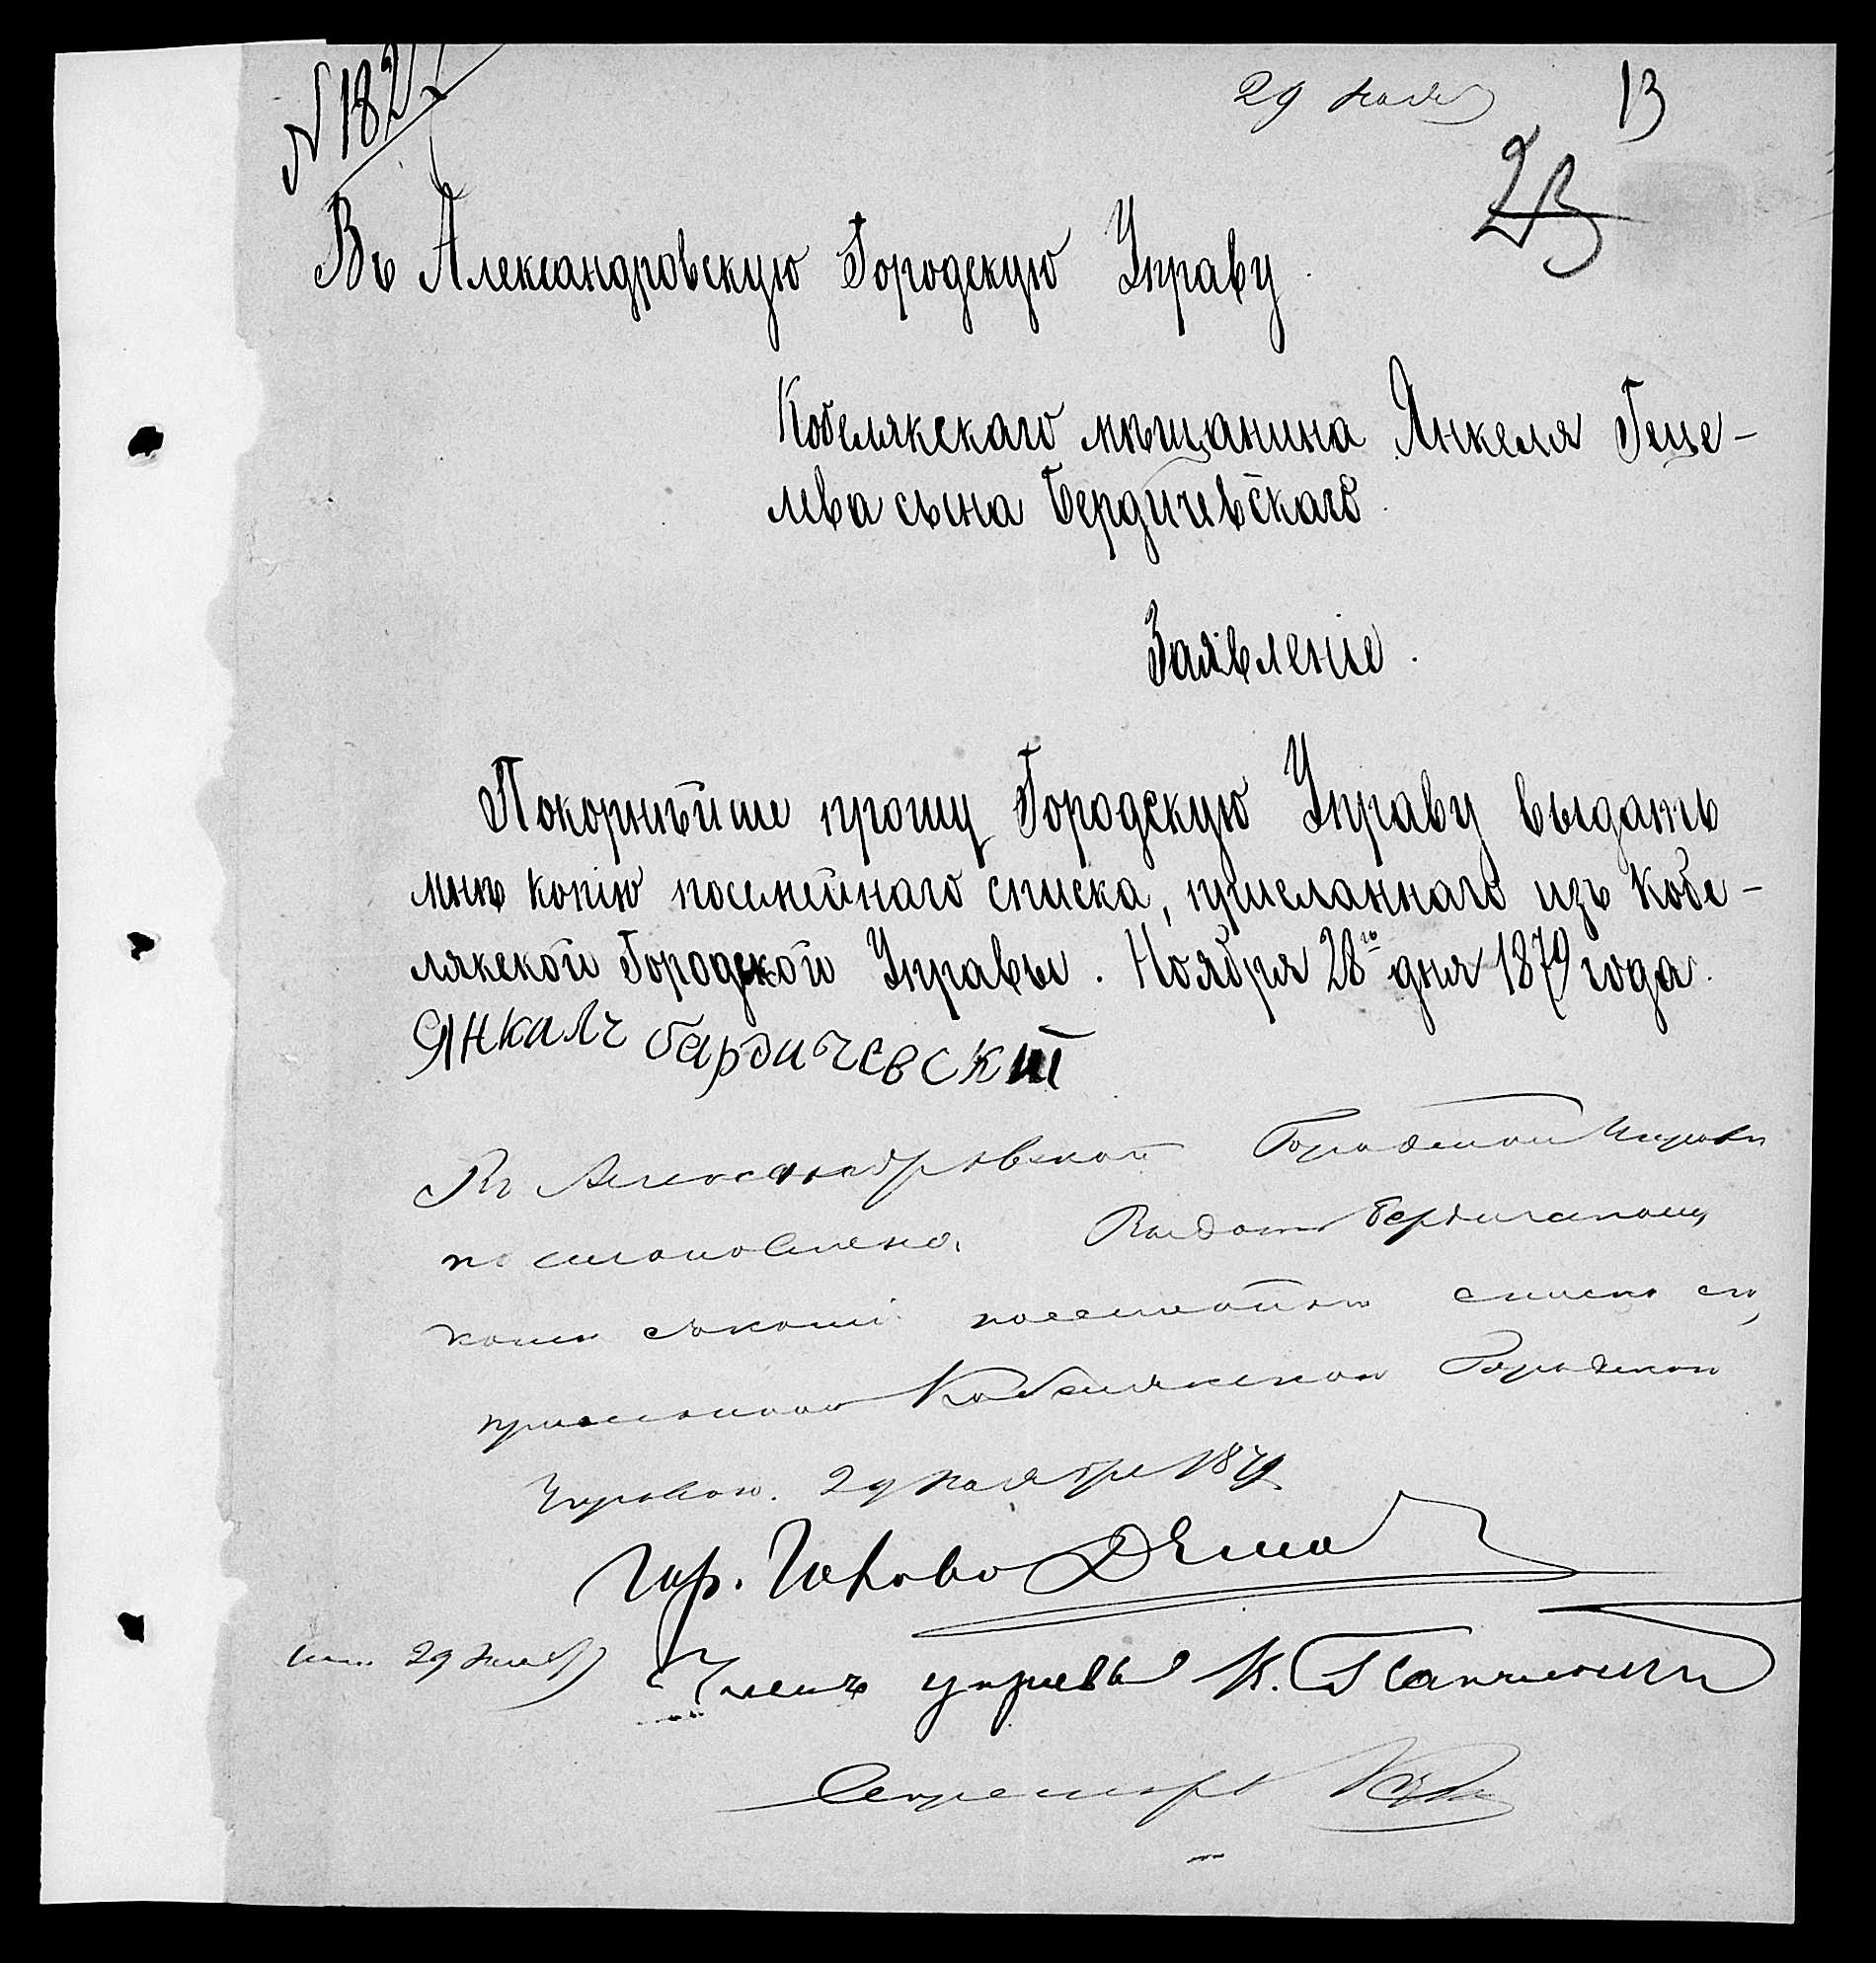 № 182
29 нояб
13
23
Въ Александровскую Городскую Управу.
Кобелякскаго мѣщанина Янкеля Геце-
лева сына Бердичевскаго.
Заявленіе.
Покорнѣйше прошу Городскую Управу выдать
мнѣ копію посемейнаго списка, присланнаго изъ Кобе-
лякской Городской Управы. Ноября 28го дня 1879 года.
Янкалч бардичевский
Въ Александровской Городской Управѣ
постановлено: Выдать Бердичевскому
копію посемейнаго списка
присланнаго Кобелякскою Городскою
Управою. 29 ноября 1879
Гор. Голова
29 нояб
Членъ управы К.
Секретарь